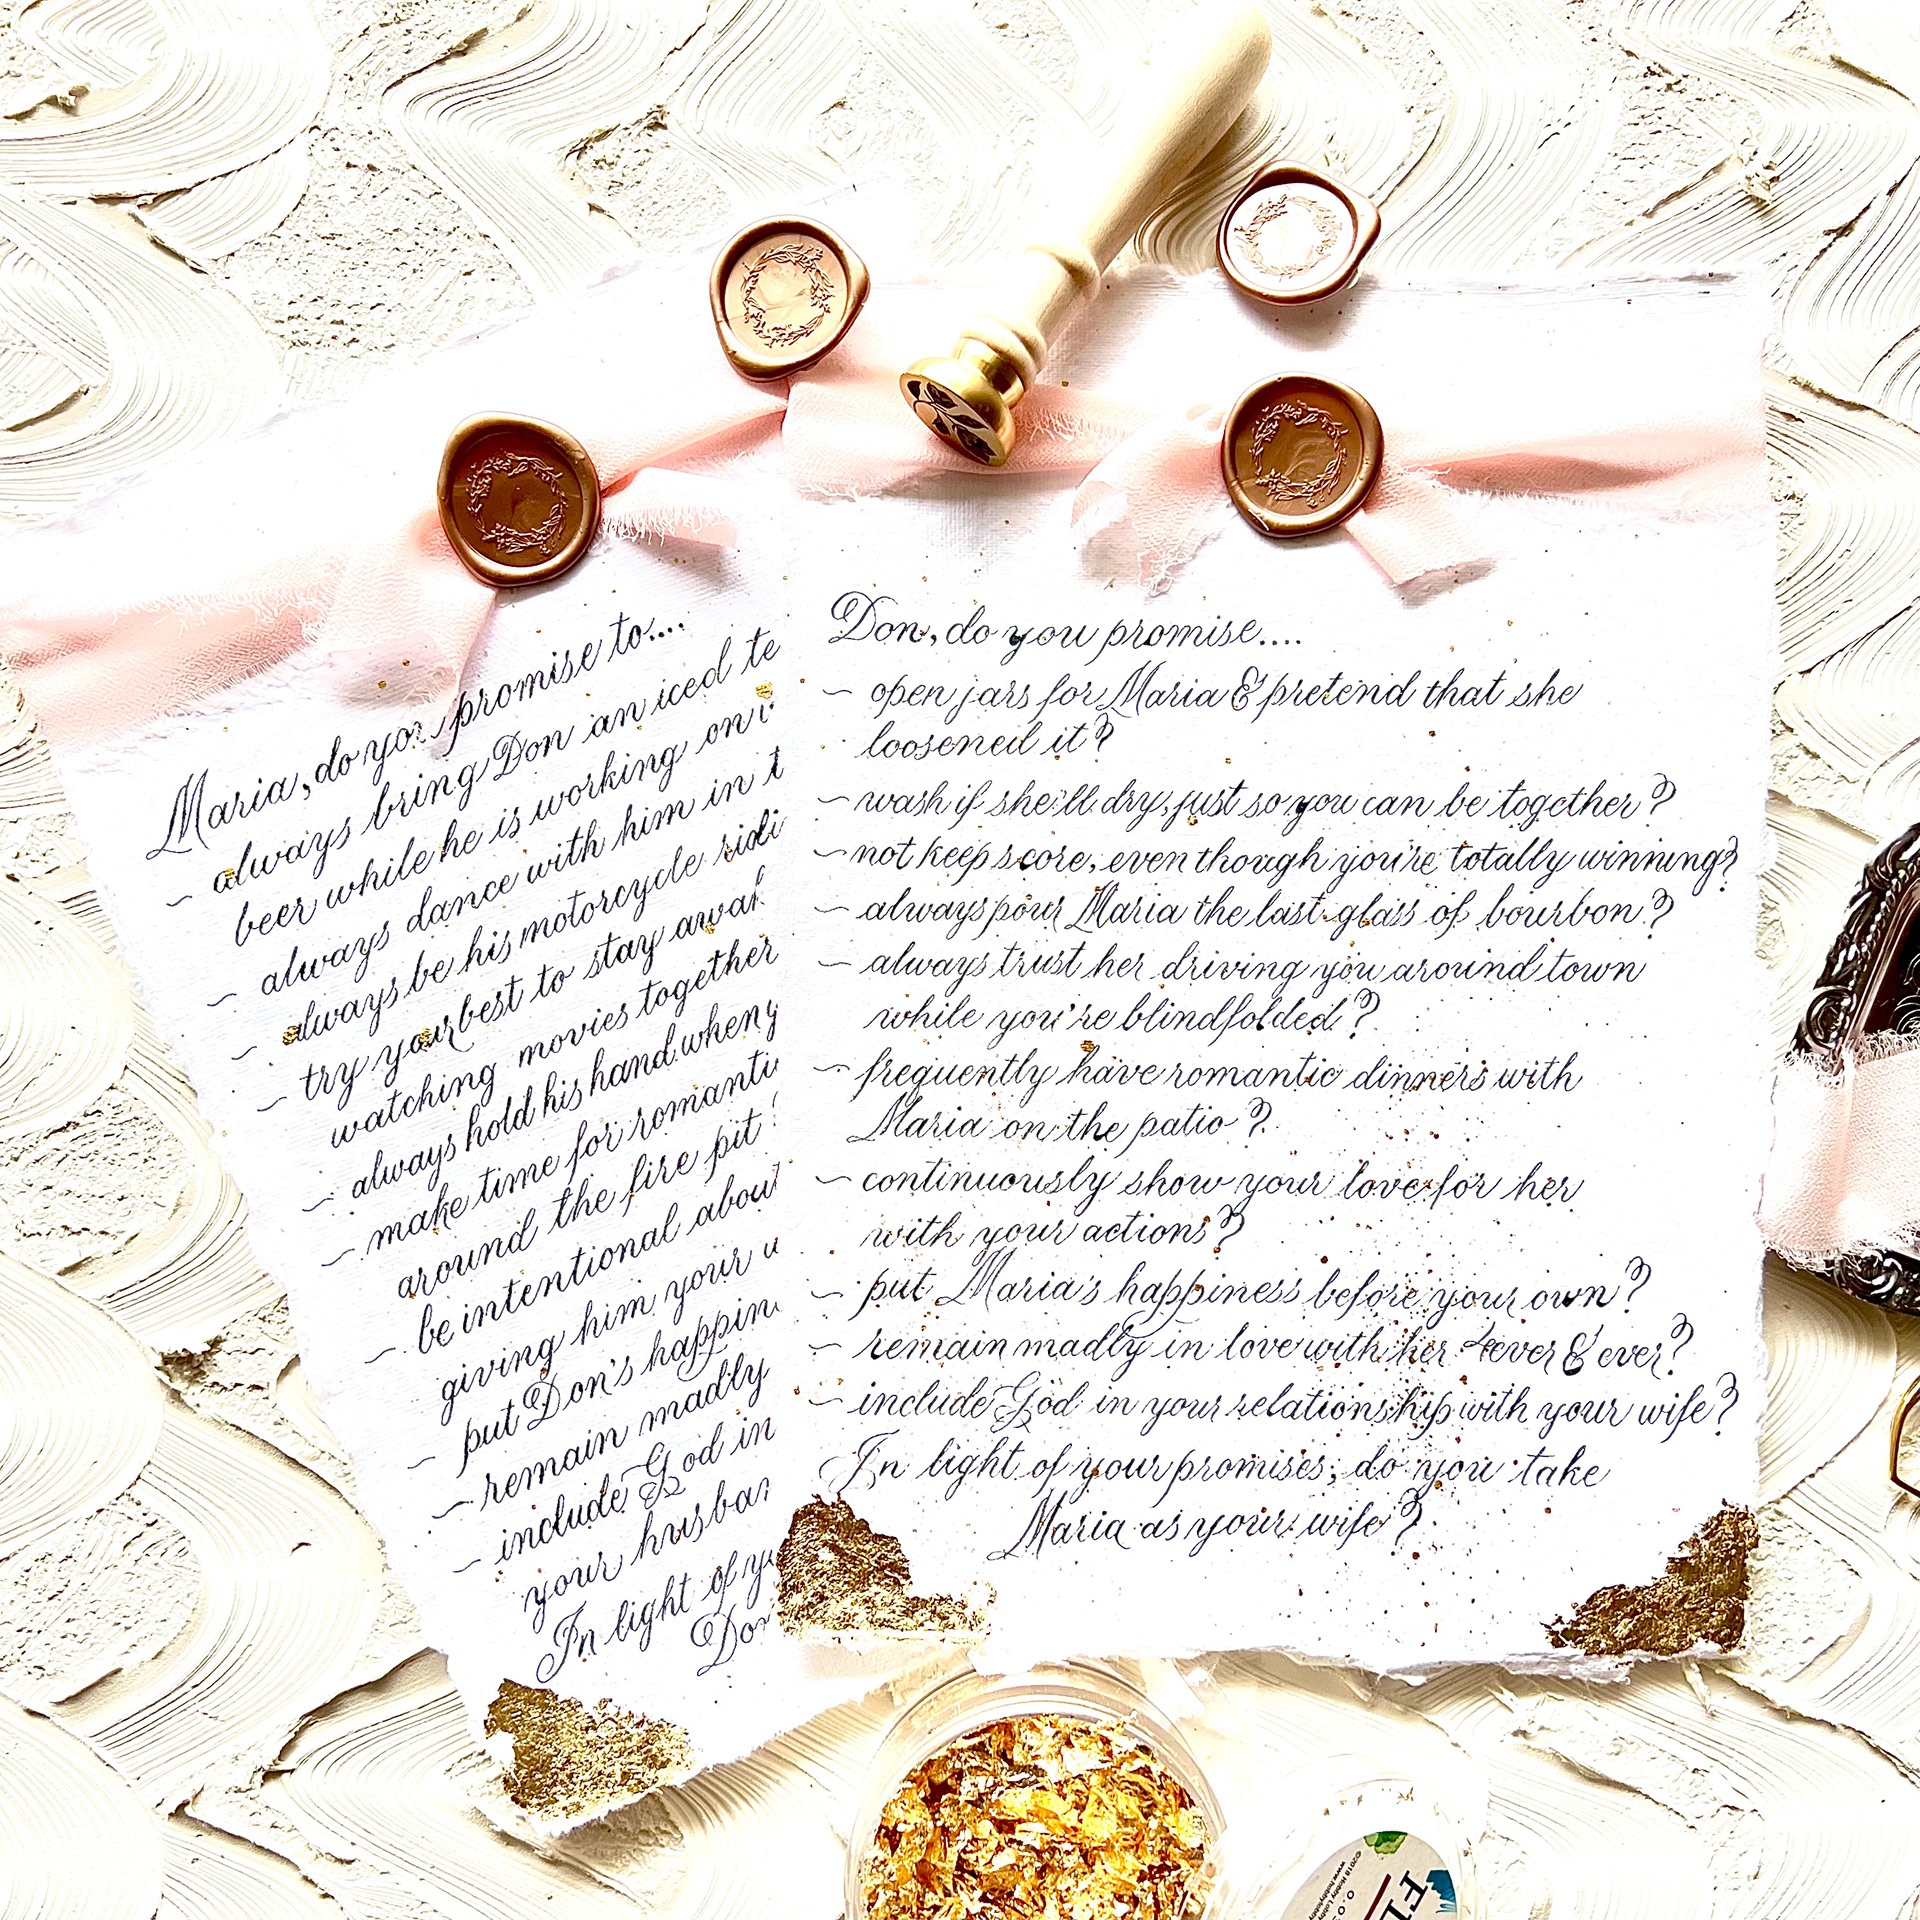 Maria, do you promise to....
~ always bring Don an iced
beer while he is working on
~ always dance with him in
~ always be his motorcycle
~ try your best to stay
watching movies together
~ always hold his hand when
~ make time for
around the fire pit
~ be intentional about
giving him your
~ put Don's
~ remain madly
~ include God in
your
In light of
Don
Don, do you promise....
~ open jars for Maria & pretend that she
loosened it?
~ wash if she'll dry, just so you can be together?
~ not keep score, even though you're totally winning?
~ always pour Maria the last glass of bourbon?
~ always trust her driving you around town
while you're blindfolded?
~ frequently have romantic dinners with
Maria on the patio?
~ continuously show your love for her
with your actions?
~ put Maria's happiness before your own?
~ remain madly in love with her 4ever & ever?
~ include God in your relationship with your wife?
In light of your promises, do you take
Maria as your wife?